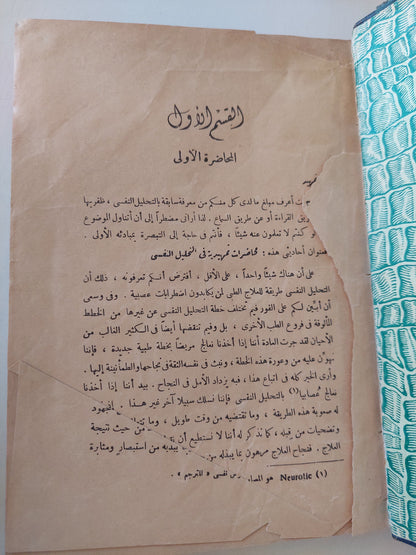 القسم الأول
المحاضرة الأولى
تمهيد
ت أعرف مبلغ ما لدى كل منكم من معرفة سابقة بالتحليل النفسى ، ظفر بها
يق القراءة أو عن طريق السماع . لذا أرانى مضطراً إلى أن أتناول الموضوع
وكنتم لا تعلمون عنه شيئاً ، فأنتم فى حاجة إلى التبصرة بمبادئه الأولى .
فعنوان أحاديثى هذه : محاضرات تمهيدية فى التحليل النفسى
على أن هناك شيئاً واحداً ، على الأقل ، أفترض أنكم تعرفونه ، ذلك أن
التحليل النفسى طريقة للعلاج الطبى لمن يكابدون اضطرابات عصبية . وفى وسعى
أن أبين لكم على الفور فيم تختلف خطة التحليل النفسى عن غيرها من الخطط
المألوفة فى فروع الطب الأخرى ، بل وفيم تنقضها أيضاً فى الكثير الغالب من
الأحيان لقد جرت العادة أننا إذا أخذنا نعالج مريضاً بخطة طبية جديدة ، فإننا
نهون عليه من وعورة هذه الخطة ، ونبث فى نفسه الثقة فى نجاحها والطمأنينة إليها .
وأرى الخير كله فى اتباع هذا ، فبه يزداد الأمل فى النجاح . بيد أننا إذا أخذنا
نعالج عُصابياً (١) بالتحليل النفسى فإننا نسلك سبيلا آخر غير هذا
له صعوبة هذه الطريقة ، وما تقتضيه من وقت طويل ، وما تقتضيه من الجهود
وتضحيات من قبله ، كما نذكر له أننا لا نستطيع أن من حيث نتيجة
العلاج . فنجاح العلاج مرهون بما يبذله يبديه من استبصار ومثابرة
(١) Neurotic هو المصاب رض نفسى « المترجم » .